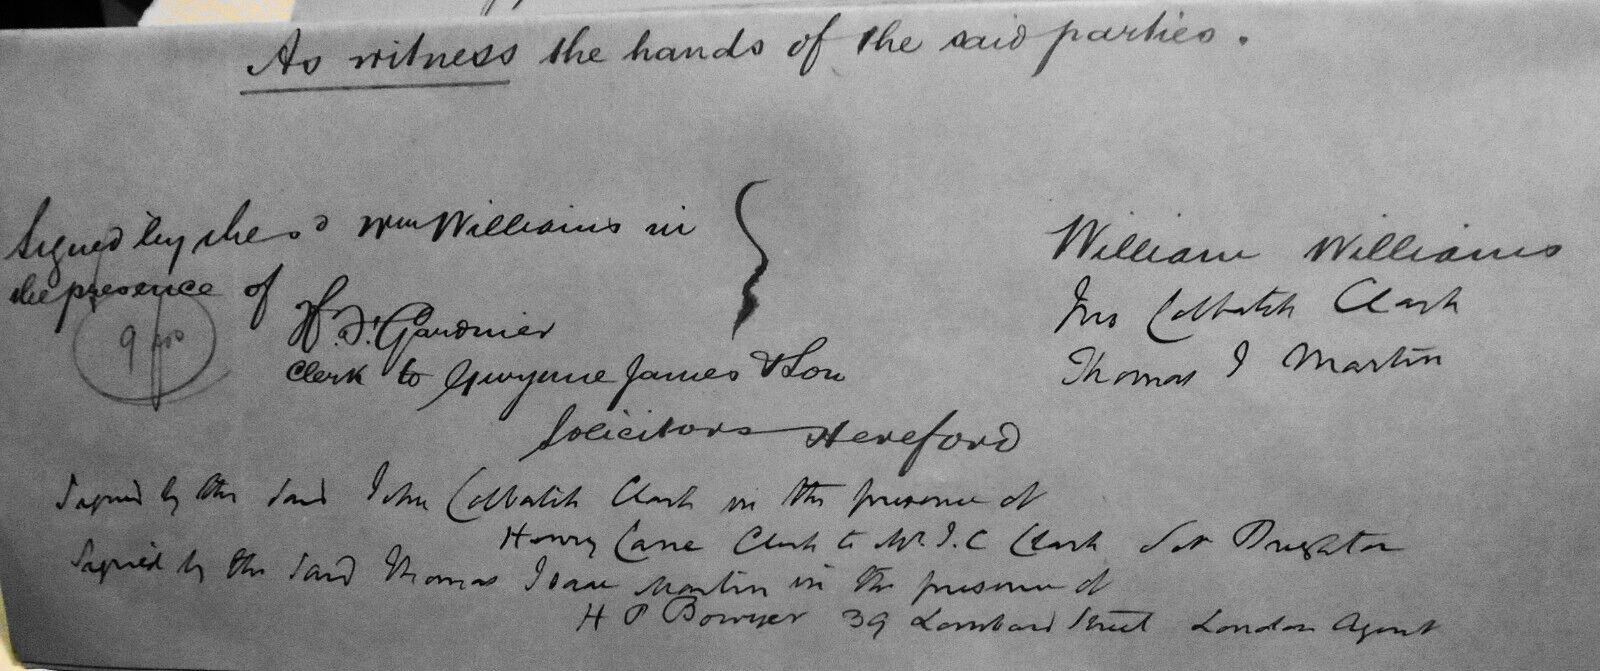 As witness the hands of the said parties.
Signed by the sd Wm Williams in
the presence of
H. F. Gardner
Clerk to Gwynne James & Son
Solicitors Hereford
William Williams
Jno Colbatch Clark
Thomas I Martin
Signed by the said John Colbatch Clark in the presence of
Henry Lane Clerk to Mr J. C Clark Sol Brighton
Signed by the said Thomas Isaac Martin in the presence of
H P Bowyer 39 Lombard Street London Agent